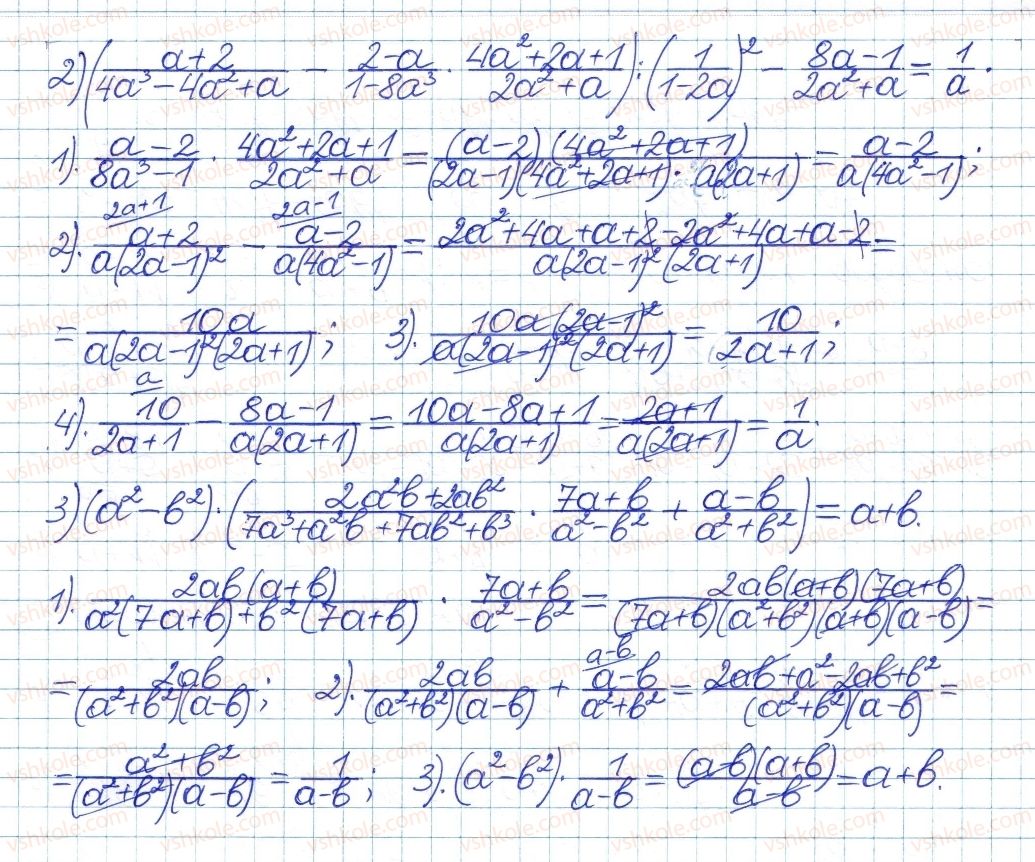 2) ((a+2)/(4a³-4a²+a) - (2-a)/(1-8a³) · (4a²+2a+1)/(2a²+a)) : (1/(1-2a))² - (8a-1)/(2a²+a) = 1/a.
1). (a-2)/(8a³-1) · (4a²+2a+1)/(2a²+a) = ((a-2)(4a²+2a+1))/((2a-1)(4a²+2a+1)·a(2a+1)) = (a-2)/(a(4a²-1));
2). 2a+1 (a+2)/(a(2a-1)²) - 2a-1 (a-2)/(a(4a²-1)) = (2a²+4a+a+2-2a²+4a+a-2)/(a(2a-1)²(2a+1)) =
= 10a/(a(2a-1)²(2a+1)); 3). (10a(2a-1)²)/(a(2a-1)²(2a+1)) = 10/(2a+1);
4). a 10/(2a+1) - (8a-1)/(a(2a+1)) = (10a-8a+1)/(a(2a+1)) = (2a+1)/(a(2a+1)) = 1/a.
3) (a²-b²)·((2a²b+2ab²)/(7a³+a²b+7ab²+b³) · (7a+b)/(a²-b²) + (a-b)/(a²+b²)) = a+b.
1). (2ab(a+b))/(a²(7a+b)+b²(7a+b)) · (7a+b)/(a²-b²) = (2ab(a+b)(7a+b))/((7a+b)(a²+b²)(a+b)(a-b)) =
= 2ab/((a²+b²)(a-b)); 2). 2ab/((a²+b²)(a-b)) + a-b (a-b)/(a²+b²) = (2ab+a²-2ab+b²)/((a²+b²)(a-b)) =
= (a²+b²)/((a²+b²)(a-b)) = 1/(a-b); 3). (a²-b²)· 1/(a-b) = ((a-b)(a+b))/(a-b) = a+b.